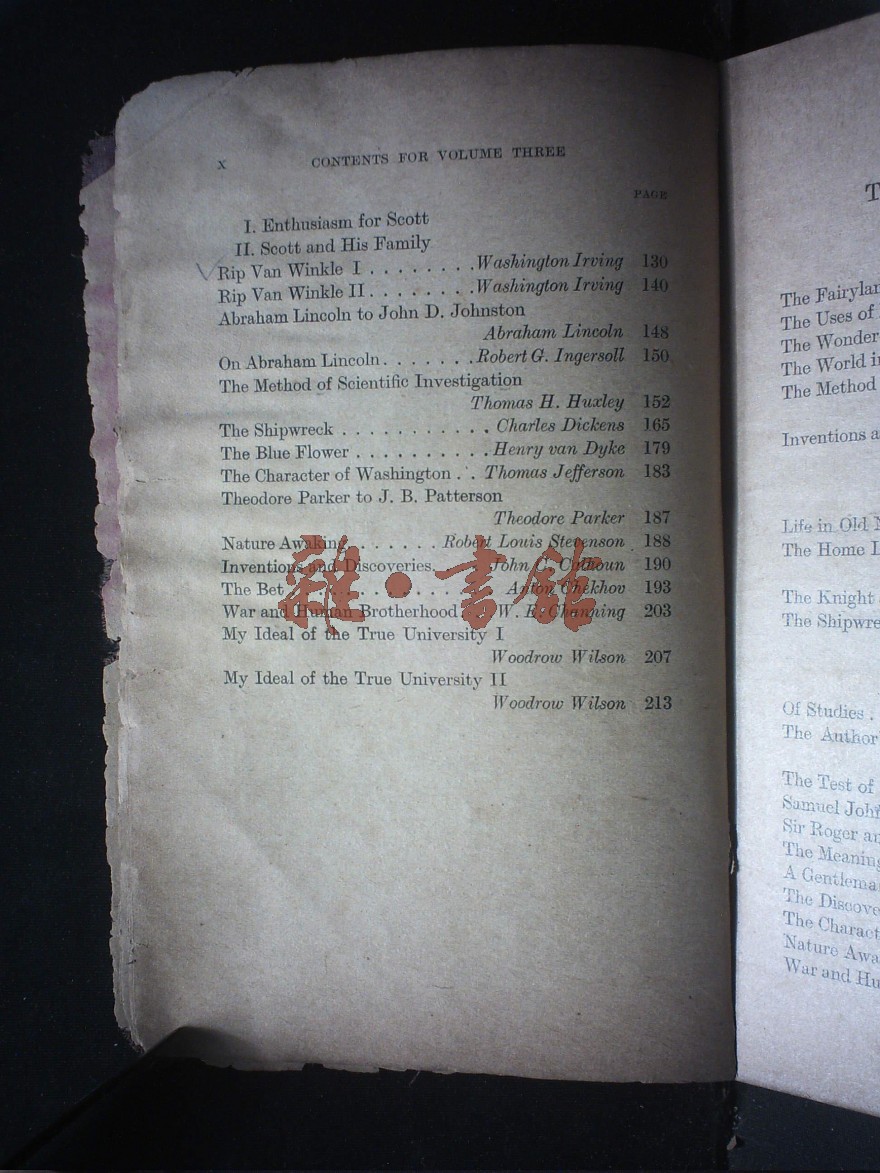 x CONTENTS FOR VOLUME THREE
PAGE
I. Enthusiasm for Scott
II. Scott and His Family
Rip Van Winkle I . . . . . . . . Washington Irving 130
Rip Van Winkle II . . . . . . . . Washington Irving 140
Abraham Lincoln to John D. Johnston
Abraham Lincoln 148
On Abraham Lincoln . . . . . . . Robert G. Ingersoll 150
The Method of Scientific Investigation
Thomas H. Huxley 152
The Shipwreck . . . . . . . . . . . Charles Dickens 165
The Blue Flower . . . . . . . . . . Henry van Dyke 179
The Character of Washington . . . Thomas Jefferson 183
Theodore Parker to J. B. Patterson
Theodore Parker 187
Nature Awaking . . . . . . . Robert Louis Stevenson 188
Inventions and Discoveries . . . John C. Calhoun 190
The Bet . . . . . . . . . . . . . . Anton Chekhov 193
War and Human Brotherhood . . W. E. Channing 203
My Ideal of the True University I
Woodrow Wilson 207
My Ideal of the True University II
Woodrow Wilson 213
雜・書館
The
The Uses of
The Wonder
The World
The Method
Inventions
Life in Old
The Home
The Knight
The Shipwre
Of Studies .
The Author
The Test of
Samuel
Sir Roger
The Meaning
A Gentlema
The Discove
The Charact
Nature Awa
War and Hu